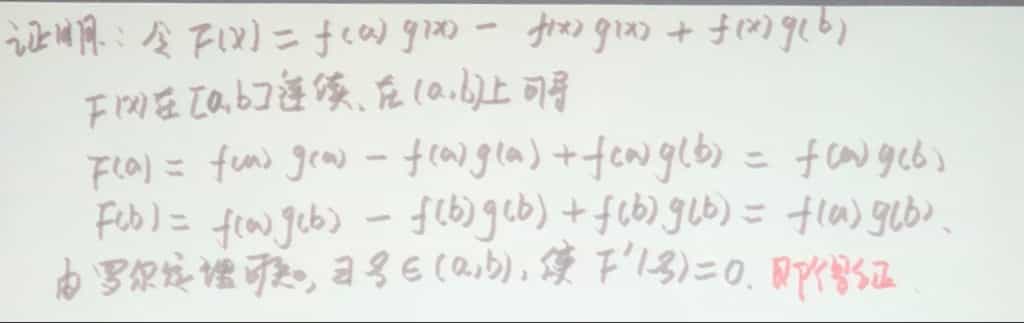 证明：令 F(x) = f(a) g(x) - f(x) g(x) + f(x) g(b)
F(x)在[a,b]连续、在(a,b)上可导
F(a) = f(a) g(a) - f(a) g(a) + f(a) g(b) = f(a) g(b)、
F(b) = f(a) g(b) - f(b) g(b) + f(b) g(b) = f(a) g(b)、
由罗尔定理可知, ∃ξ∈(a,b), 使 F'(ξ)=0. 即得证